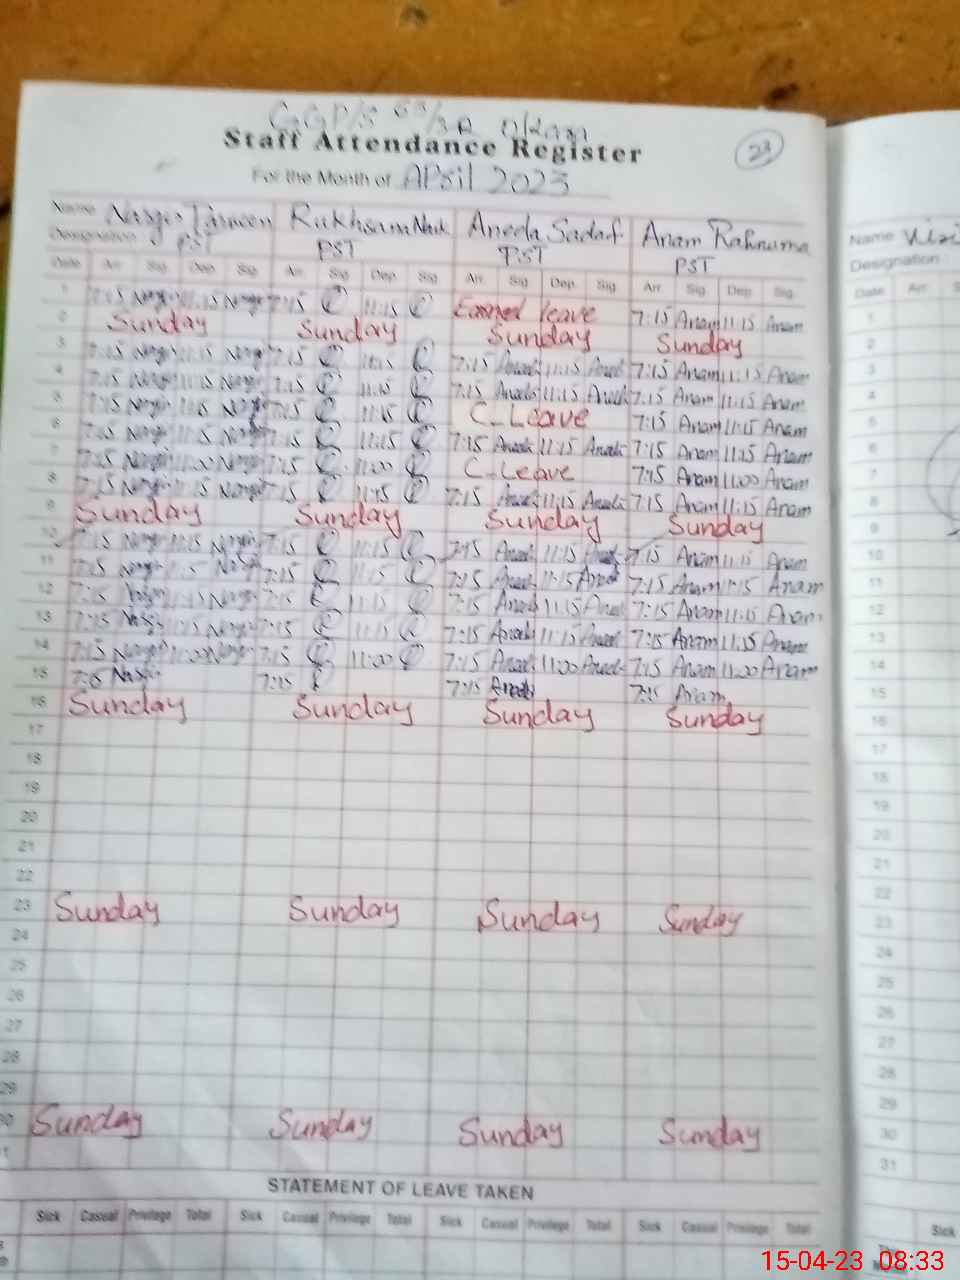 Staff Attendance Register
23
For the Month of April 2023
Name Nargis Tasneem Rukhsana Naik Aneela Sadaf Anam Rahnuma
Designation PST PST PST PST
Date Arr Sig Dep Sig Arr Sig Dep Sig Arr Sig Dep Sig Arr Sig Dep Sig
1 7:15 Nargis 11:15 Nargis 7:15 11:15 Earned leave 7:15 Anam 11:15 Anam
2 Sunday Sunday Sunday Sunday
3 7:15 Nargis 11:15 Nargis 7:15 11:15 7:15 Aneela 11:15 Aneela 7:15 Anam 11:15 Anam
4 7:15 Nargis 11:15 Nargis 7:15 11:15 7:15 Aneela 11:15 Aneela 7:15 Anam 11:15 Anam
5 7:15 Nargis 11:15 Nargis 7:15 11:15 C-Leave 7:15 Anam 11:15 Anam
6 7:15 Nargis 11:15 Nargis 7:15 11:15 7:15 Aneela 11:15 Aneela 7:15 Anam 11:15 Anam
7 7:15 Nargis 11:00 Nargis 7:15 11:00 C-Leave 7:15 Anam 11:00 Anam
8 7:15 Nargis 11:15 Nargis 7:15 11:15 7:15 Aneela 11:15 Aneela 7:15 Anam 11:15 Anam
9 Sunday Sunday Sunday Sunday
10 7:15 Nargis 11:15 Nargis 7:15 11:15 7:15 Aneela 11:15 7:15 Anam 11:15 Anam
11 7:15 Nargis 11:15 Nargis 7:15 11:15 7:15 Aneela 11:15 Aneela 7:15 Anam 11:15 Anam
12 7:15 Nargis 11:15 Nargis 7:15 11:15 7:15 Aneela 11:15 Aneela 7:15 Anam 11:15 Anam
13 7:15 Nargis 11:15 Nargis 7:15 11:15 7:15 Aneela 11:15 Aneela 7:15 Anam 11:15 Anam
14 7:15 Nargis 11:00 Nargis 7:15 11:00 7:15 Aneela 11:00 Aneela 7:15 Anam 11:00 Anam
15 Nargis 7:15 7:15 Aneela 7:15 Anam
16 Sunday Sunday Sunday Sunday
17
18
19
20
21
22
23 Sunday Sunday Sunday Sunday
24
25
26
27
28
29
30 Sunday Sunday Sunday Sunday
STATEMENT OF LEAVE TAKEN
Sick Casual Privilege Total Sick Casual Privilege Total Sick Casual Privilege Total Sick Casual Privilege Total
Name
Designation
Date Arr
1
2
3
4
5
6
7
8
9
10
11
12
13
14
15
16
17
18
19
20
21
22
23
24
25
26
27
28
29
30
31
Sick
15-04-23 08:33